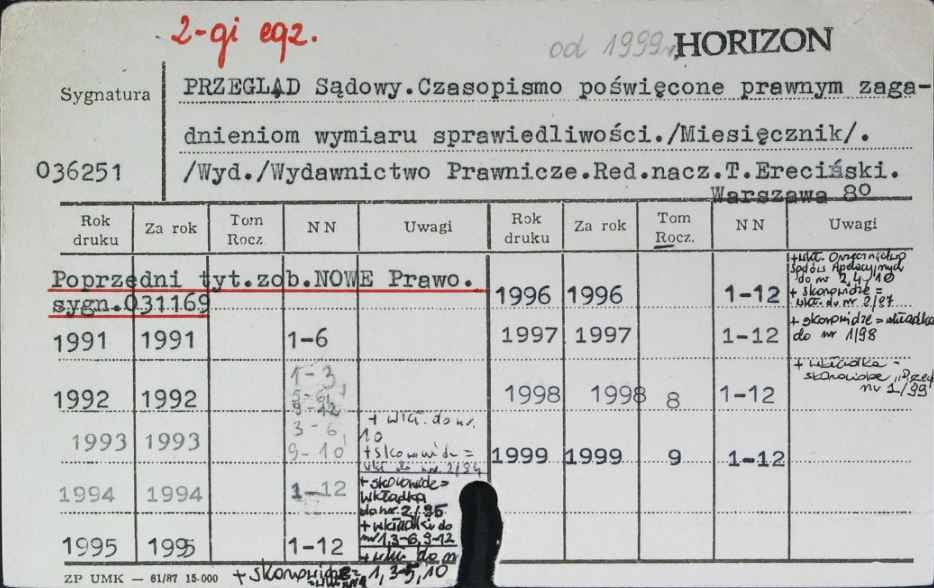 2-gi egz.
od 1999r. HORIZON
Sygnatura
036251
PRZEGLĄD Sądowy.Czasopismo poświęcone prawnym zaga-
dnieniom wymiaru sprawiedliwości./Miesięcznik/.
/Wyd./Wydawnictwo Prawnicze.Red.nacz.T.Ereciński.
Warszawa 8º
Rok druku Za rok Tom Rocz. NN Uwagi Rok druku Za rok Tom Rocz. NN Uwagi
Poprzedni tyt.zob.NOWE Prawo.
sygn.031169
1991 1991 1-6
1992 1992 1-3
5-6
9-12
1993 1993 3-6
9-10
+ wkł. do nr.
10
+ skorowidz =
wkł. do nr. 2/94
1994 1994 1-12
+ skorowidz =
wkładka
do nr. 2/95
+ wkładki do
nr 1,3-6,9-12
1995 1995 1-12
+ wkł. do nr
1, 3-5, 10
+ skorowidz =
1996 1996 1-12
+ wkł. Orzecznictwo
Sądów Apelacyjnych
do nr 2,4,10
+ skorowidz =
wkł. do nr 2/97
1997 1997 1-12
+ skorowidz = wkładka
do nr 1/98
1998 1998 8 1-12
+ wkładka -
skorowidz
nr 1/99
1999 1999 9 1-12
ZP UMK — 61/87 15.000